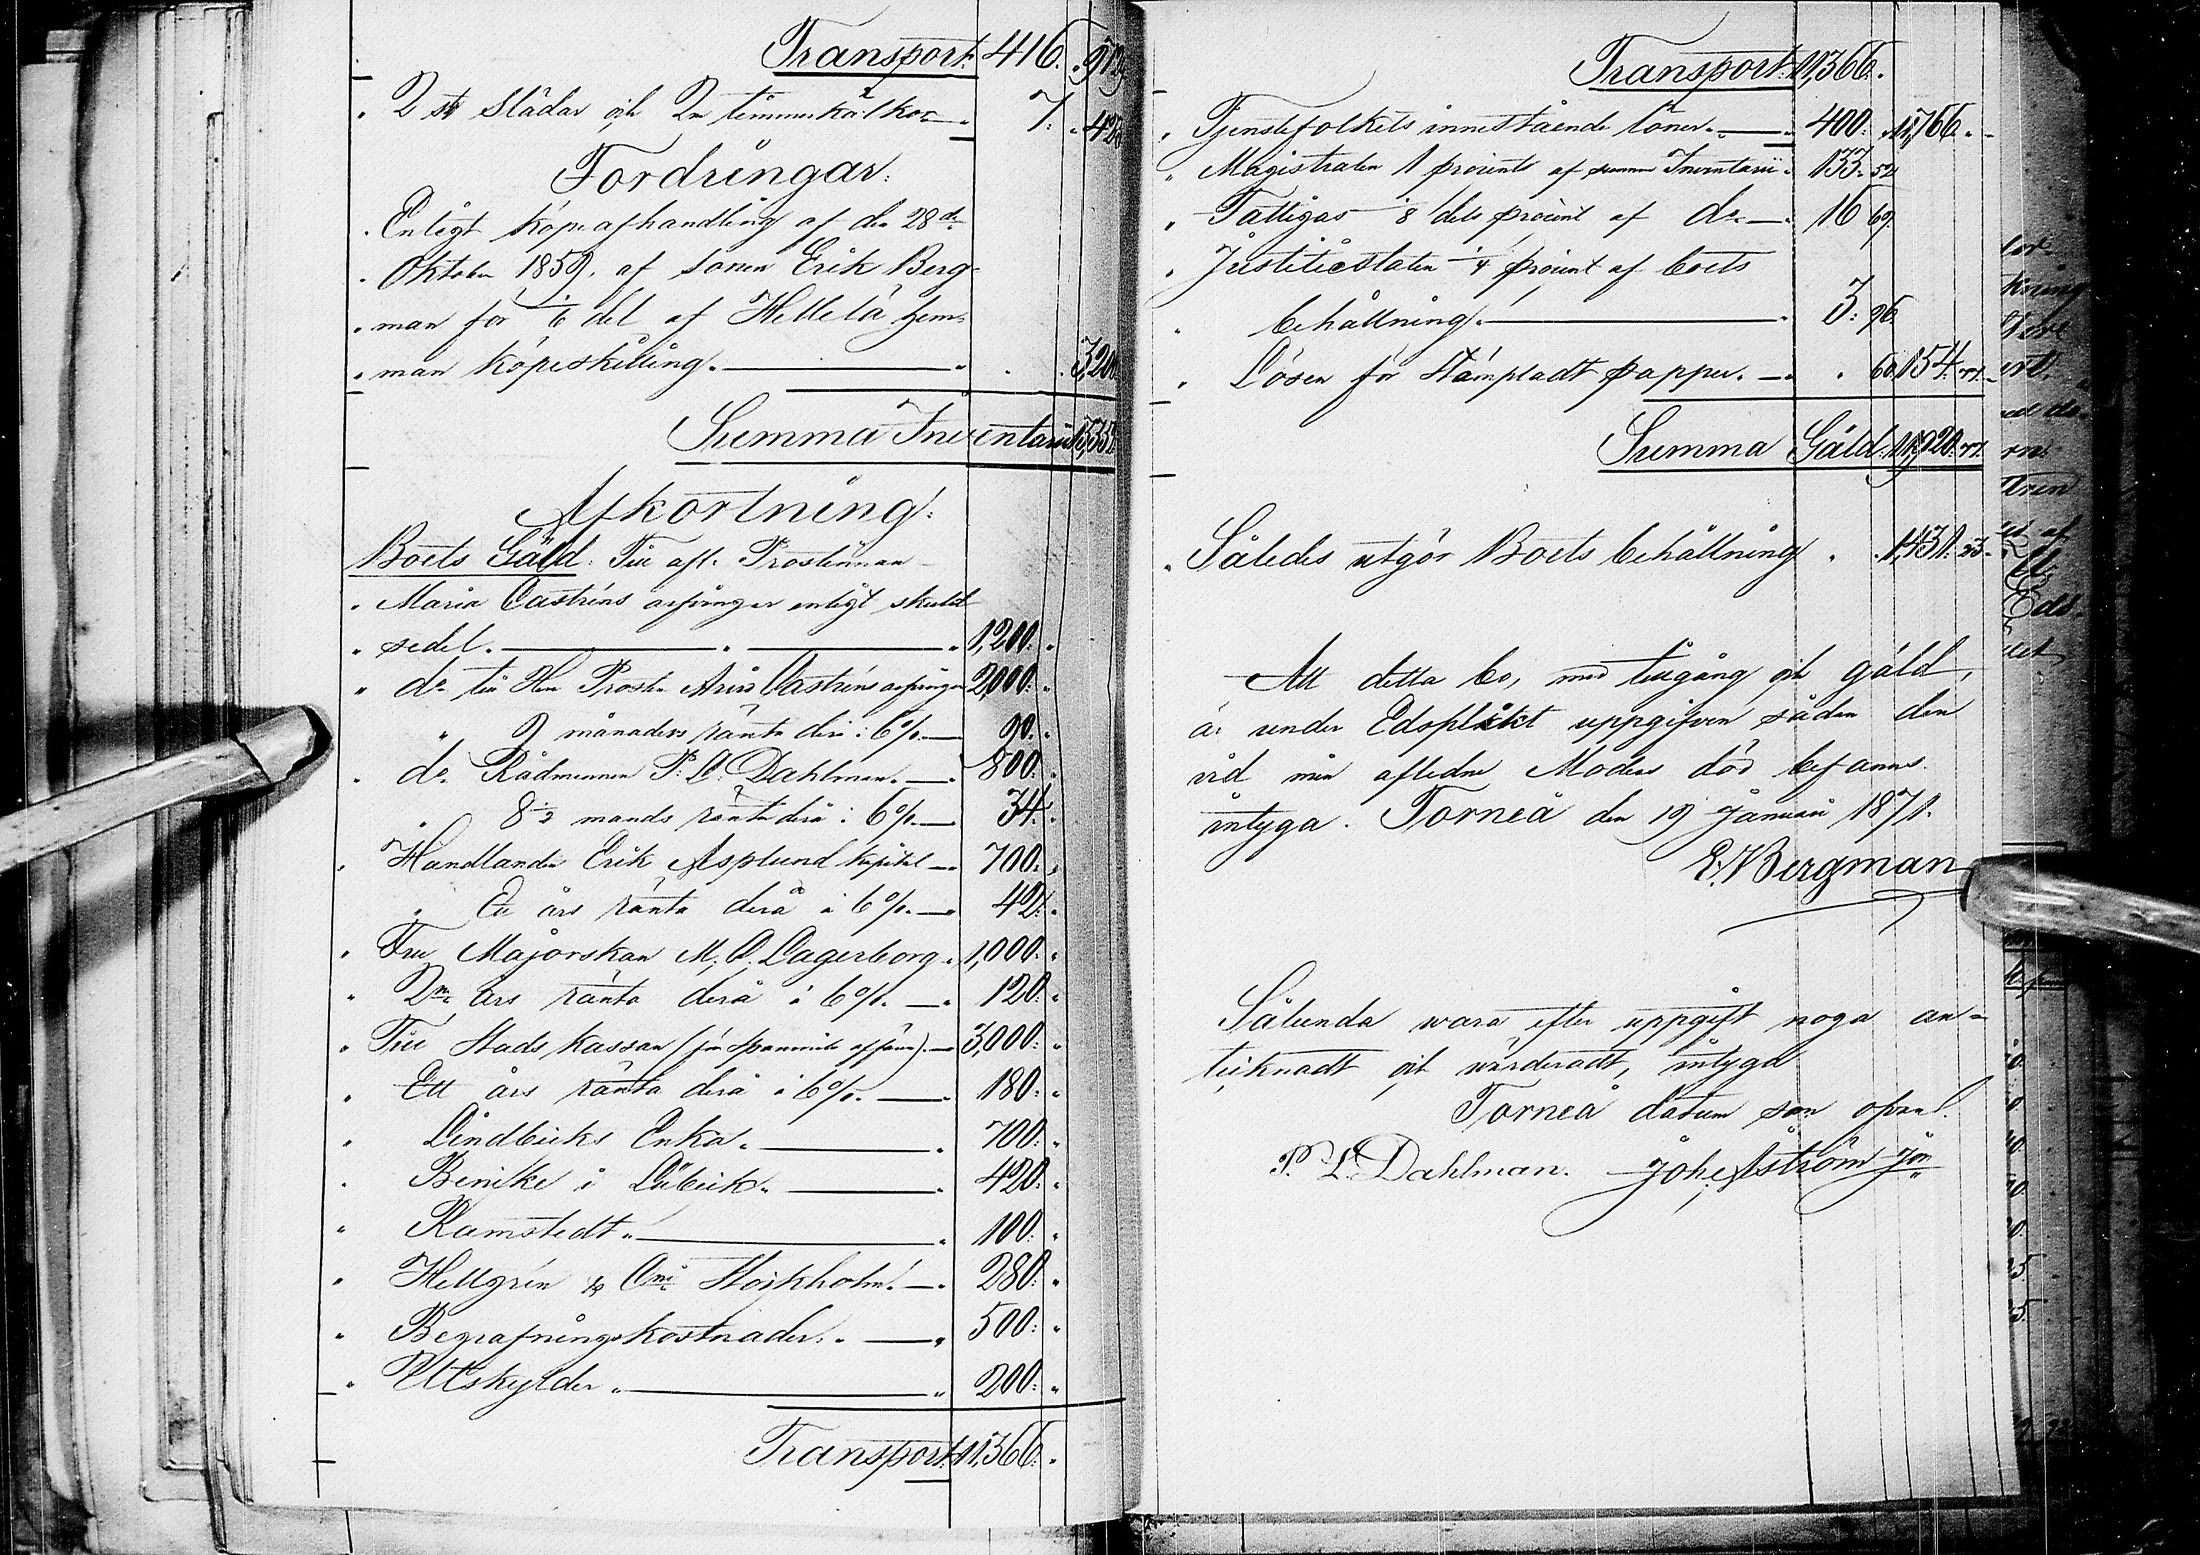 Transport: 416. „ 9,
„ 2 st Slädar och 2ne timmerkälkor — „ 7: „ 42
Fordringar:
„ Enligt köpeafhandling af den 28de
„ Oktober 1859, af sonen Erik Berg-
„ man för 1/6 del af Hellelä hem-
„ man köpeskilling. — „ „ „ 3,20
Summa Inventarii
Afkortning:
Boets Gäld: Till afl. Prostinnan
„ Maria Castréns arfvingar enligt skuld-
„ sedel. — „ — „ 1,200: „
„ do till Herr Prosten Castréns arfvingar 2,000: „
„ 9 månaders ränta derå i 6%. — 90. „
„ do Rådmannen P: L: Dahlman. — „ 800: „
„ 8 1/2 månads ränta derå i 6%. — 34: „
„ Handlanden Erik Asplund kapital — „ 700: „
„ Ett års ränta derå a 6%. — „ 42: „
„ Fru Majorskan M. C. Lagerborg. „ 1,000: „
„ 2ne års ränta derå a 6%. — „ 120: „
„ Till Stads kassan (för . — 3,000: „
„ Ett års ränta derå a 6%. — „ 180: „
„ Lindbecks Enka. — „ 700: „
„ Benicke i Lübeck. — „ 420: „
„ Ramstedt „ — „ 100: „
„ Hellgrén & Cni Stockholm. — „ 280: „
„ Begrafningskostnader. „ — „ 500: „
„ Utskylder „ — „ 200: „
Transport: 11,366: „
Transport: 11,366: „
„ Tjenstefolkets innestående löner. — „ 400: „ 11,766. „
„ Magistraten 1 procent af summa Inventarii „ 133. 52
„ Fattigas 1/8 dels procent af do — „ 16 69.
„ Justitiæstaten 1/4 procent af boets
„ behållning. — „ 3: 96.
„ Lösen för Stämpladt papper. — „ „ 60. 154: 77.
Summa Gäld: 11,920: 77.
„ Således utgör Boets behållning „ „ 1,431: 23.
Att detta bo, med tillgång och gäld,
är under Edsplikt uppgifven sådan den
vid min aflidne Moders död befanns
intyga. Torneå den 19 Januari 1871.
E. Bergman
Sålunda wara efter uppgift noga an-
tecknadt och wärderadt, intyga
Torneå datum som ofvan.
P. L. Dahlman. Joh. Åström Jön